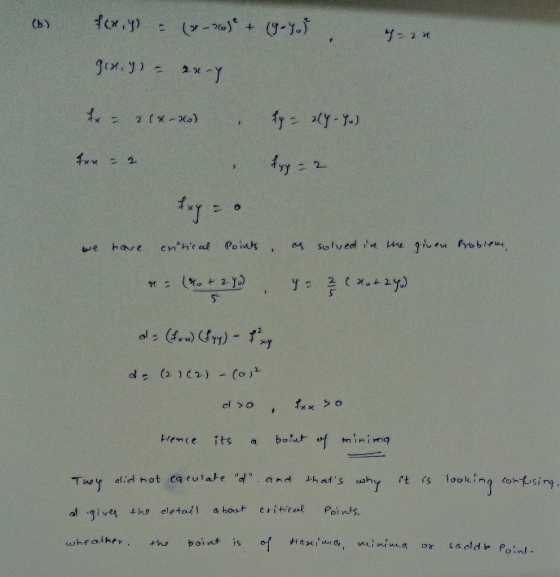 (b) f(x,y) = (x-x₀)² + (y-y₀)² , y=2x
g(x,y) = 2x-y
fx = 2(x-x₀) , fy = 2(y-y₀)
fxx = 2 , fyy = 2
fxy = 0
we have critical points, as solved in the given problem,
x = (x₀+2y₀)/5 , y = 2/5 (x₀+2y₀)
d = (fxx)(fyy) - f²xy
d = (2)(2) - (0)²
d>0 , fxx>0
Hence its a point of minima
They did not caculate "d" and that's why it is looking confusing.
d gives the detail about critical points.
wheather, the point is of maxima, minima or saddle point.